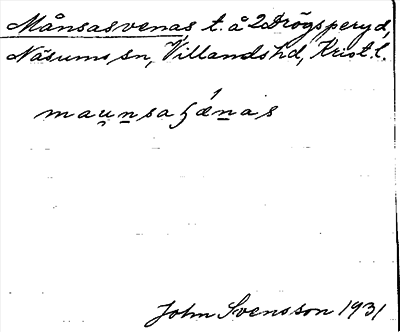 Månsasvenas t. å 2 Drögsperyd,
Näsums sn, Villands hd, Krist. l.
John Svensson 1931